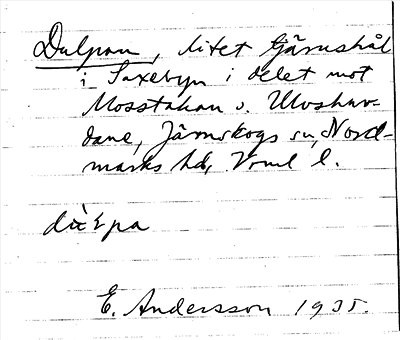 Dulpan, litet tjärnshål
i Saxebyn i delet mot
Mosstakan o. Ulvshav-
dane, Järnskogs sn, Nord-
marks hd, Vrml l.
E. Andersson 1935.